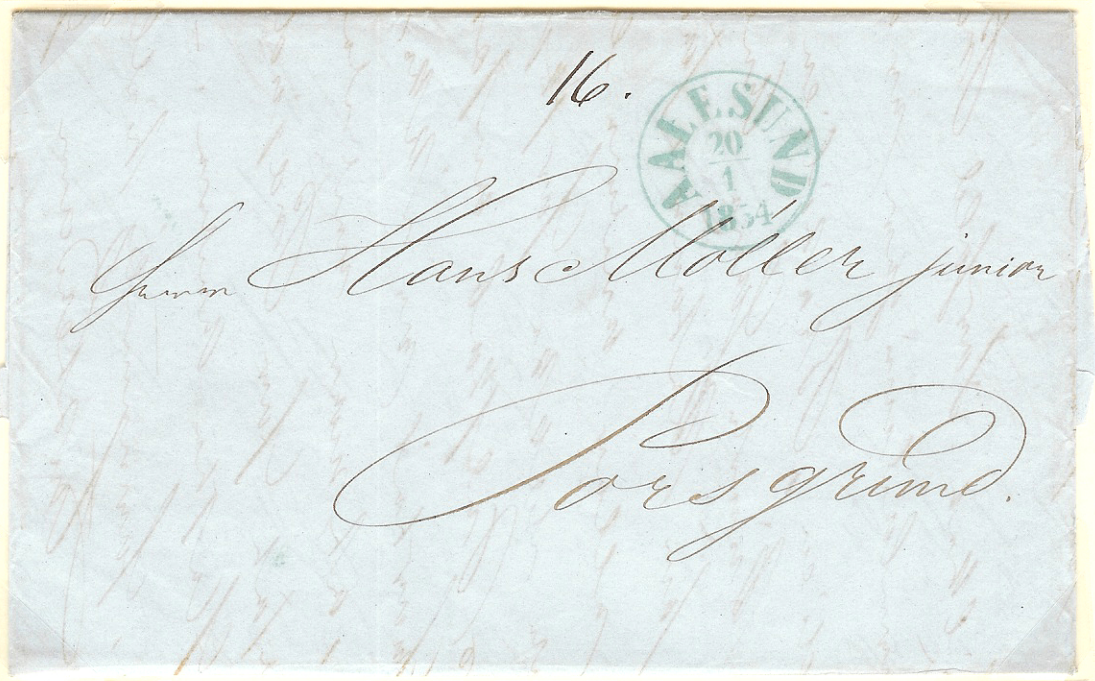 16.
AALESUND
20
1
1854
Herrn Hans Möller junior
Porsgrund.